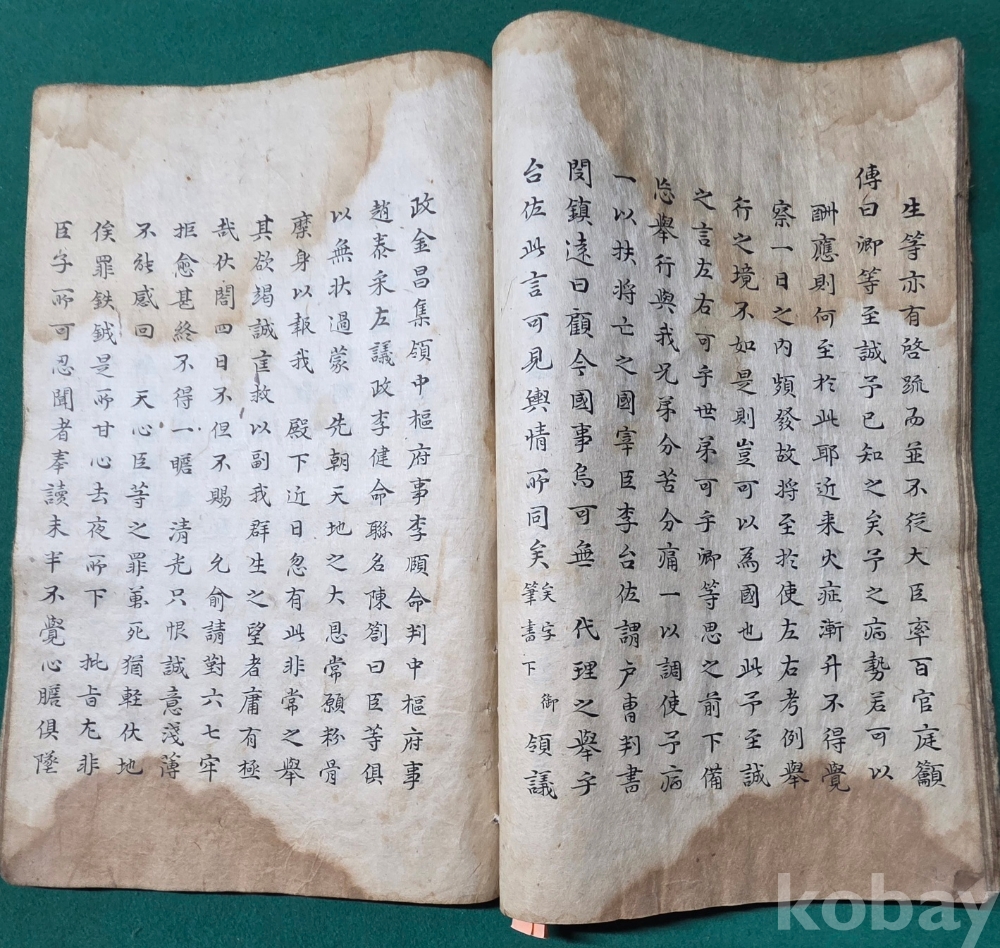 生等亦有啓䟽而並不從大臣率百官庭籲
傳曰卿等至誠予已知之矣予之病勢若可以
酬應則何至於此耶近来火症漸升不得覺
察一日之內頻發故將至於使左右考例舉
行之境不如是則豈可以為國也此予至誠
之言左右可乎世弟可乎卿等思之前下備
忘舉行與我兄弟分苦分痛一以調使予病
一以扶將亡之國宰臣李台佐謂户曹判書
閔鎮遠曰顧今國事烏可無 代理之舉乎
台佐此言可見輿情所同矣 矣字 御筆書下 領議
政金昌集領中樞府事李頤命判中樞府事
趙泰采左議政李健命聯名陳箚曰臣等俱
以無狀過蒙 先朝天地之大恩常願粉骨
糜身以報我 殿下近日忽有此非常之舉
其欲竭誠匡救以副我群生之望者庸有極
哉伏閤四日不但不賜 允俞請對六七牢
拒愈甚終不得一瞻 清光只恨誠意淺薄
不能感回 天心臣等之罪萬死猶軽伏地
俟罪鈇鉞是所甘心去夜所下 批旨尤非
臣字所可忍聞者奉讀未半不覺心膽俱墜
kobay